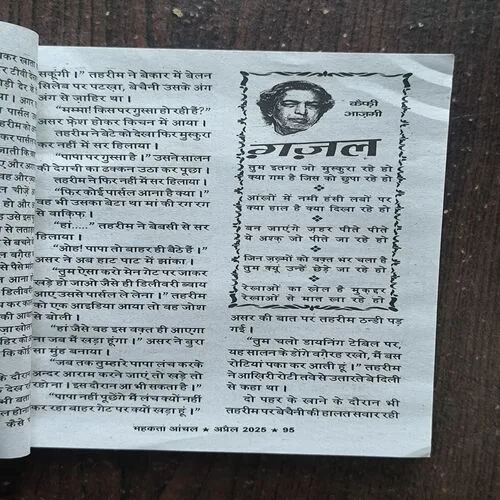 कर खाता
टीवी देख
ड़ी देर
सकूंगी।" तहरीम ने बेकार में बेलन
सिलेब पर पटख़ा, बेचैनी उसके अंग
अंग से ज़ाहिर था।
"मम्मा! किस पर गुस्सा हो रही हैं?"
असर फ्रेश होकर किचन में आया।
तहरीम ने बेटे को देखा फिर मुस्कुरा
कर नहीं में सर हिलाया।
"पापा पर गुस्सा है।" उसने सालन
की देगची का ढक्कन उठा कर पूछा।
तहरीम ने फिर नहीं में सर हिलाया।
"फिर कोई पार्सल आना है क्या।"
वह भी उसका बेटा था मां की रग रग
से वाकिफ़।
"हां....." तहरीम ने बेबसी से सर
हिलाया।
"ओह! पापा तो बाहर ही बैठे हैं।"
असर ने अब हाट पाट में झांका।
"तुम ऐसा करो मेन गेट पर जाकर
खड़े हो जाओ जैसे ही डीलवरी ब्वाय
आए उससे पार्सल ले लेना।" तहरीम
को एक आइडिया आया तो वह जोश
से बोली।
"हां जैसे वह इस वक़्त ही आएगा
जब मैं खड़ा हूंगा।" असर ने बुरा
सा मुंह बनाया।
"जब तक तुम्हारे पापा लंच करके
अन्दर आराम करने जाएं तो खड़े तो
होना। इस दौरान आ भी सकता है।"
"पापा नहीं पूछेंगे मैं लंच क्यों नहीं
कर रहा बाहर गेट पर क्यों खड़ा हूं।"
कैफ़ी
आज़मी
ग़ज़ल
तुम इतना जो मुस्कुरा रहे हो
क्या ग़म है जिस को छुपा रहे हो
आंखों में नमी हंसी लबों पर
क्या हाल है क्या दिखा रहे हो
बन जाएंगे ज़हर पीते पीते
ये अश्क जो पीते जा रहे हो
जिन ज़ख़्मों को वक़्त भर चला है
तुम क्यूं उन्हें छेड़े जा रहे हो
रेखाओं का खेल है मुक़द्दर
रेखाओं से मात खा रहे हो
असर की बात पर तहरीम ठन्डी पड़
गई।
"तुम चलो डायनिंग टेबिल पर,
यह सालन के डोंगे वग़ैरह रखो, मैं बस
रोटियां पका कर आती हूं।" तहरीम
ने आख़िरी रोटी तवे से उतारते बे दिली
से कहा था।
दो पहर के खाने के दौरान भी
तहरीम पर बेचैनी की हालत सवार रही
महकता आंचल ★ अप्रैल 2025 ★ 95